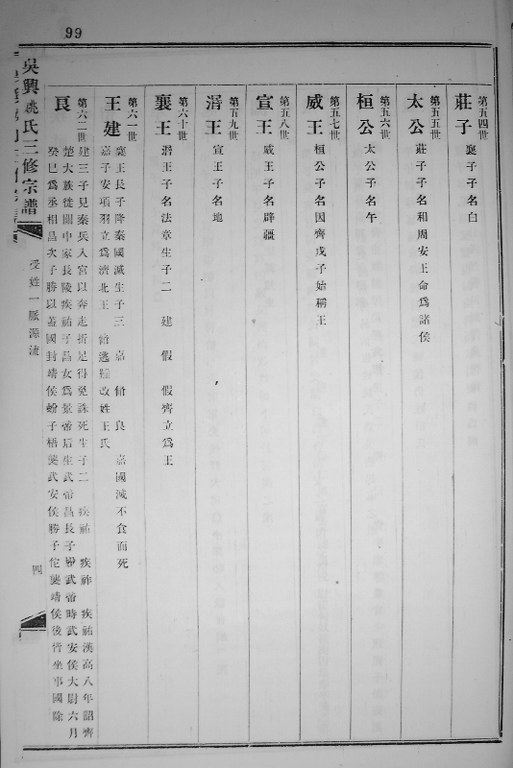 99
第五四世
莊子 襄子子名白
第五五世
太公 莊子子名和周安王命爲諸侯
第五六世
桓公 太公子名午
第五七世
威王 桓公子名因齊戊子始稱王
第五八世
宣王 威王子名辟疆
第五九世
湣王 宣王子名地
第六十世
襄王 湣王子名法章生子二 建 假 假齊立爲王
第六一世
王建 襄王長子降秦國滅生子三 嘉 脩 良 嘉國滅不食而死
嘉子安項羽立爲濟北王 脩逃難改姓王氏
第六二世
良 建三子見秦兵入宮以奔走折足得免誅死生子二 疾祐 疾祚 疾祐漢高八年詔齊
楚大族徙關中家長陵疾祐子昌女爲景帝后生武帝昌長子蚡武帝時武安侯大尉六月
癸巳爲丞相昌次子勝以蓋國封靖侯蚡子梧襲武安侯勝子佗襲靖侯後皆坐事國除
吳興姚氏三修宗譜
受姓一脈源流
四